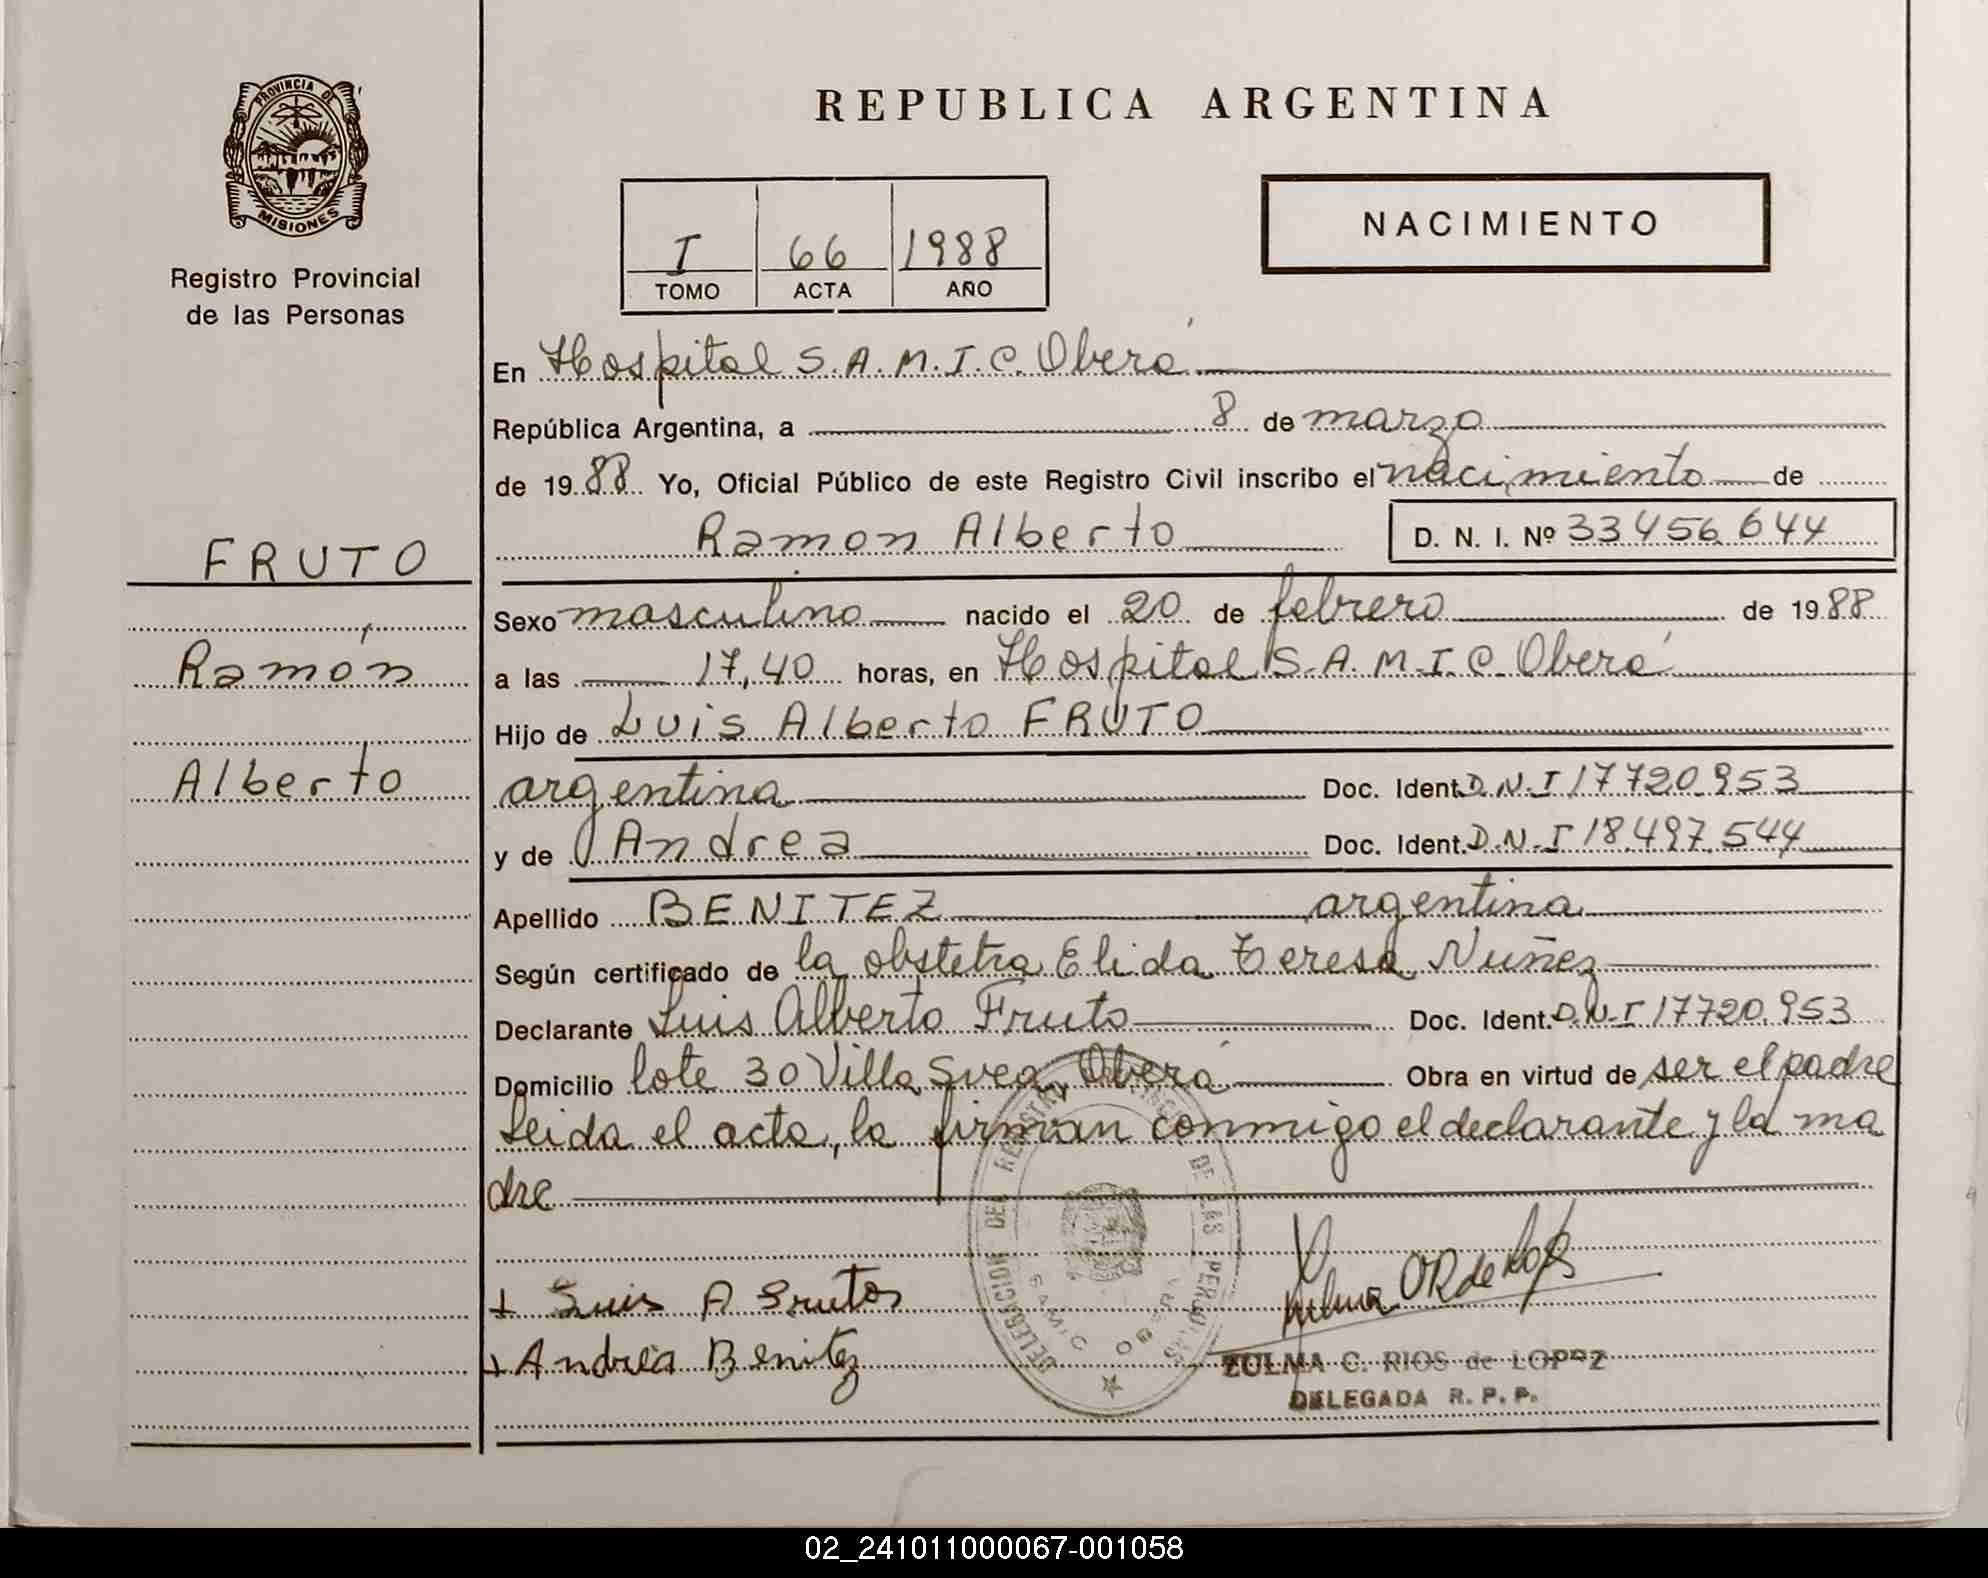 PROVINCIA DE
MISIONES
Registro Provincial
de las Personas
FRUTO
Ramón
Alberto
REPUBLICA ARGENTINA
I 66 1988
TOMO ACTA AÑO
NACIMIENTO
En Hospital S.A.M.I.C. Oberá
República Argentina, a 8 de marzo
de 1988 Yo, Oficial Público de este Registro Civil inscribo el nacimiento de
Ramon Alberto D. N. I. Nº 33456644
Sexo masculino nacido el 20 de febrero de 1988
a las 17,40 horas, en Hospital S.A.M.I.C. Oberá
Hijo de Luis Alberto FRUTO
argentina Doc. Ident. D.N.I 17720.953
y de Andrea Doc. Ident. D.N.I 18.497.544
Apellido BENITEZ argentina
Según certificado de la obstetra Elida Teresa Nuñez
Declarante Luis Alberto Fruto Doc. Ident. D.N.I 17720.953
Domicilio lote 30 Villa Svea, Oberá Obra en virtud de ser el padre
Leida el acta, la firman conmigo el declarante y la ma
dre
DELEGACION DEL REGISTRO PROVINCIAL DE LAS PERSONAS
SAMIC OBERA
+ Luis A Frutos
+ Andrea Benitez
Zulma C R de López
ZULMA C. RIOS de LOPEZ
DELEGADA R. P. P.
02_241011000067-001058